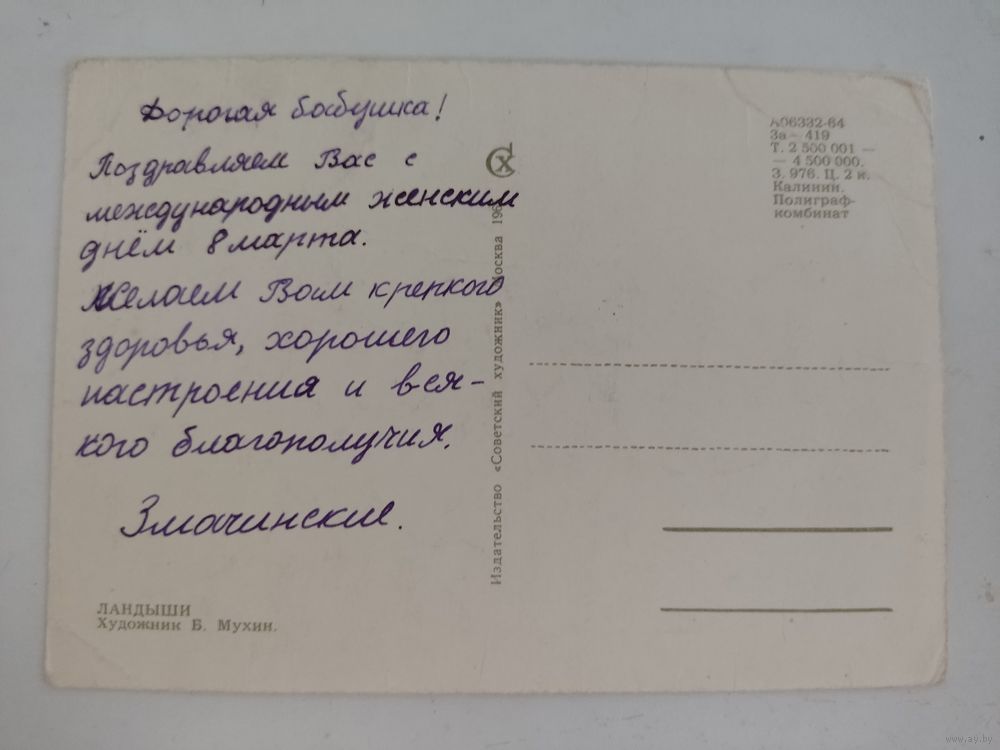 Дорогая бабушка!
Поздравляем Вас с
международным женским
днём 8 марта.
Желаем Вам крепкого
здоровья, хорошего
настроения и вся-
кого благополучия.
Змачинские.
ЛАНДЫШИ
Художник Б. Мухин.
Издательство «Советский художник» Москва 196
А06332-64
За — 419
Т. 2 500 001 —
— 4 500 000.
З. 976. Ц. 2 к.
Калинин.
Полиграф-
комбинат
www.ay.by